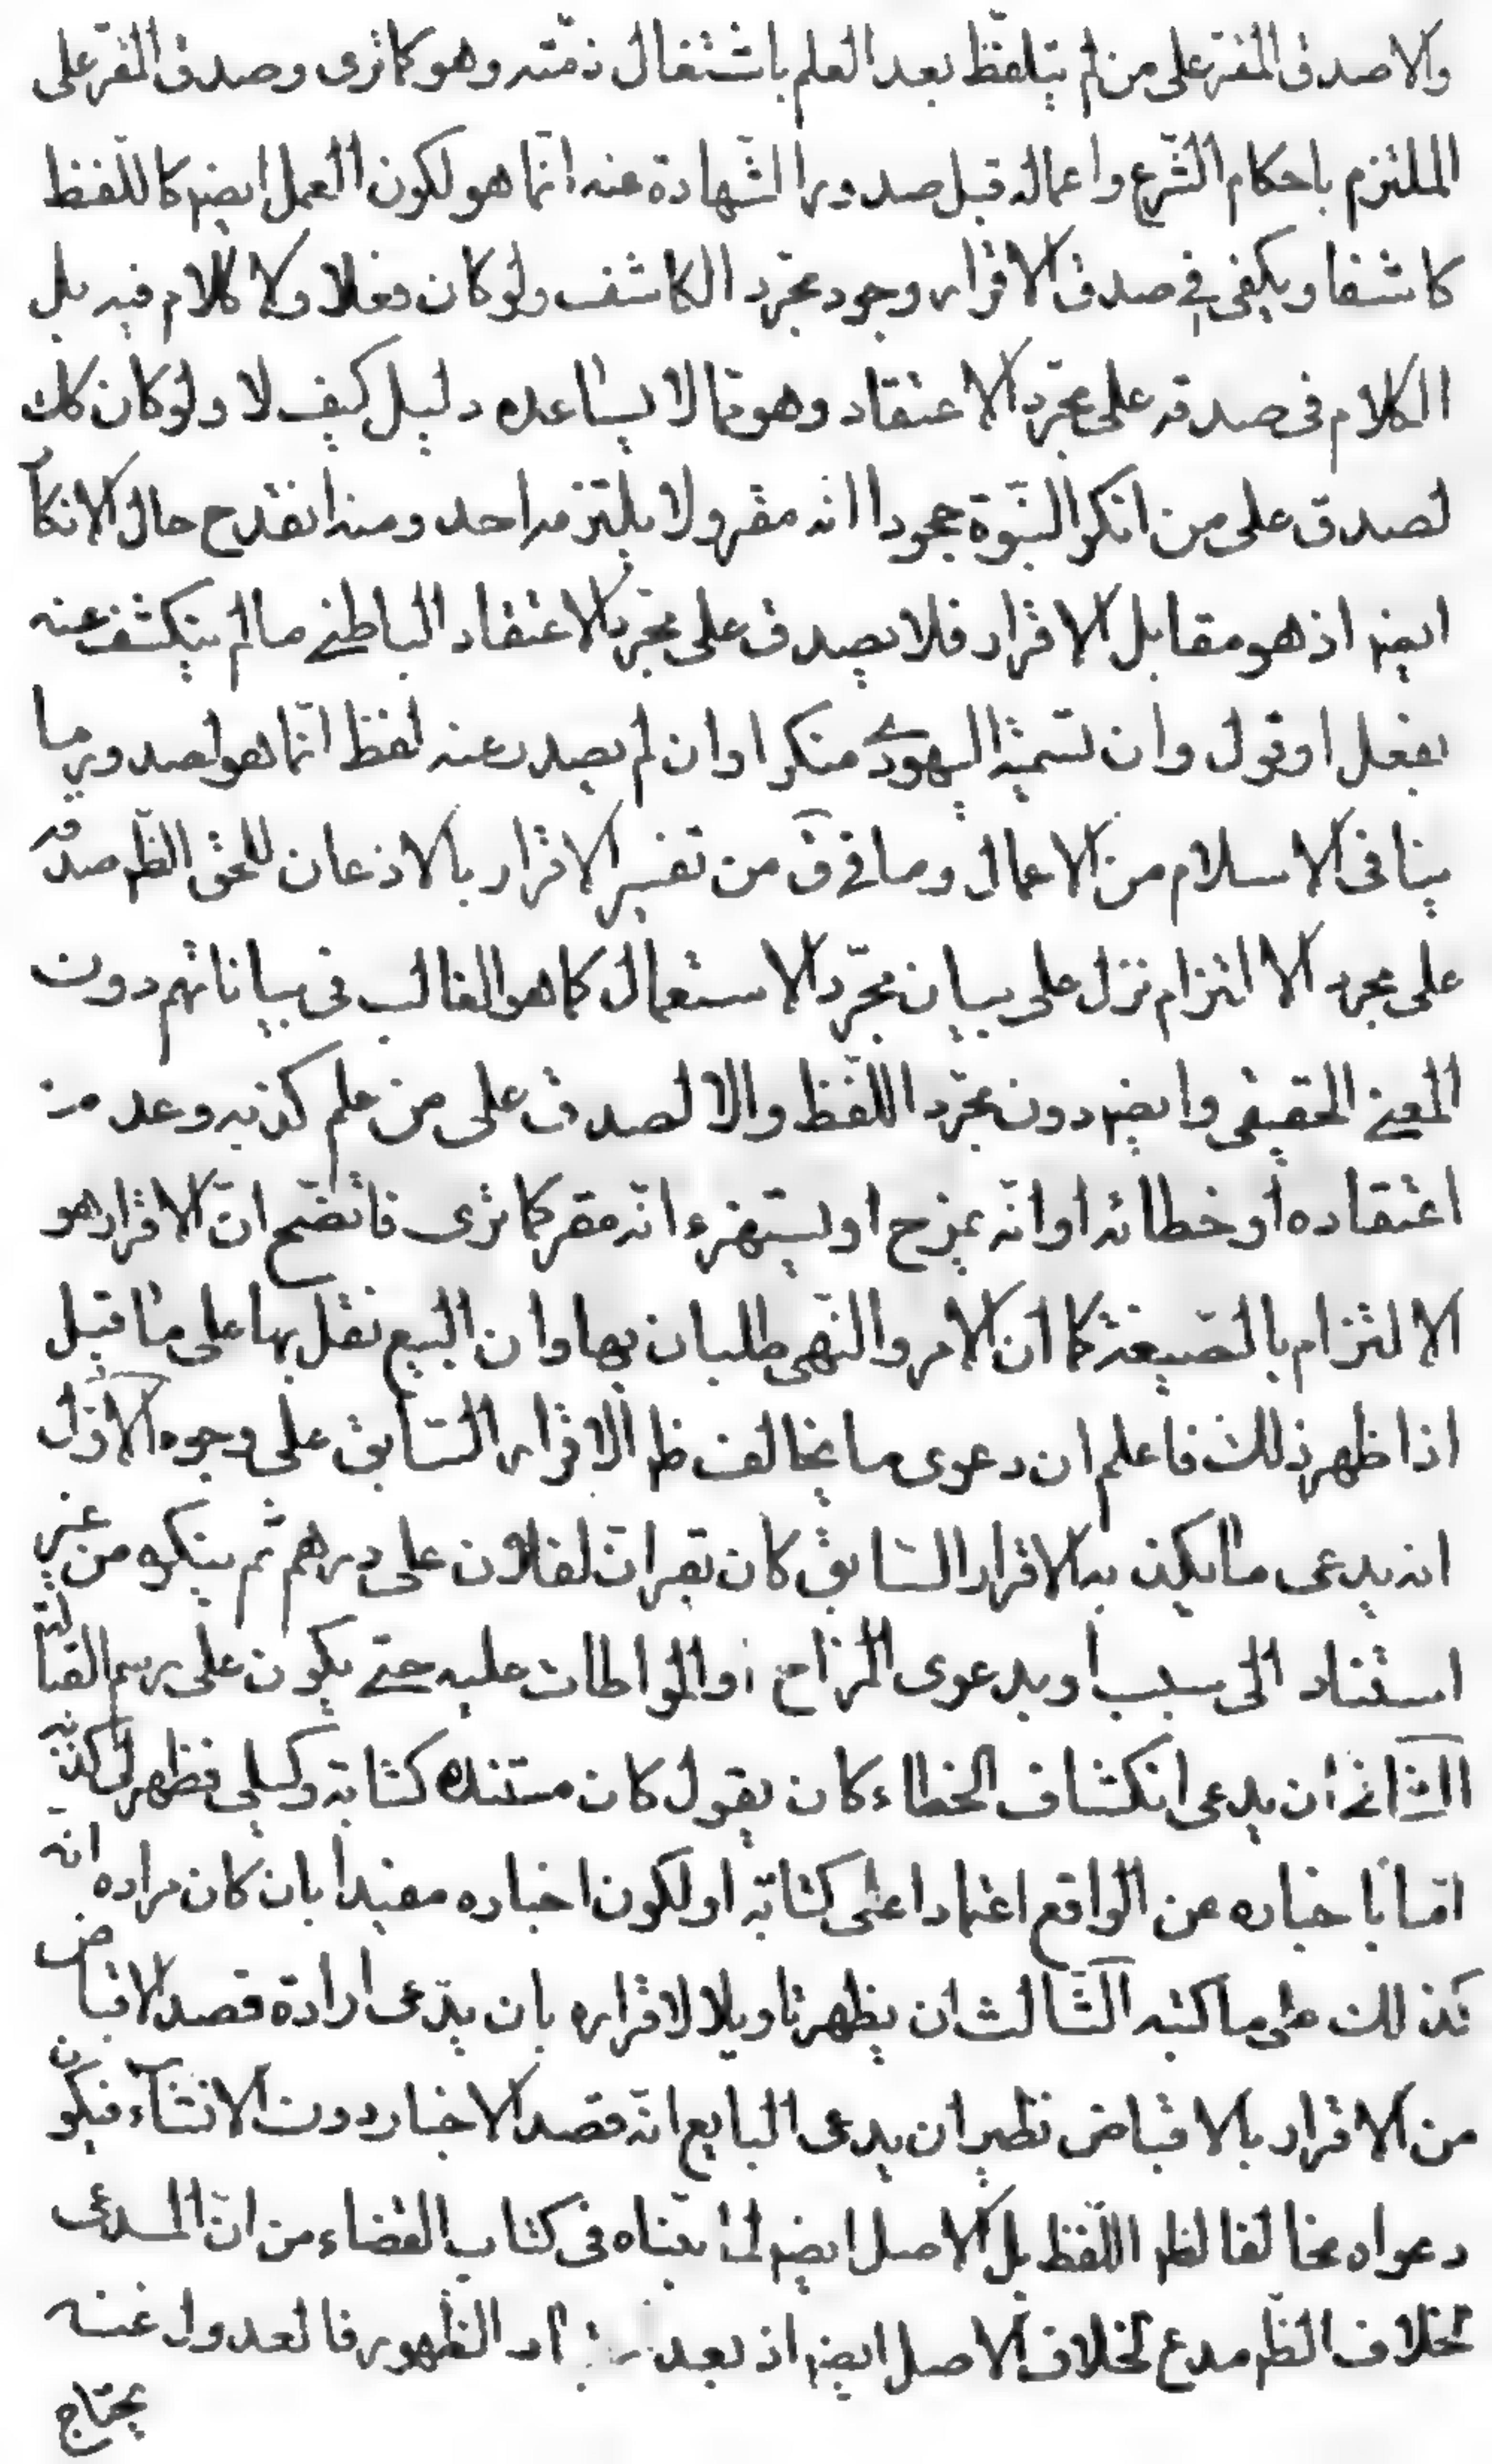 والا صدق المقر على من لم يتلفظ بعد العلم باشتغال ذمّته وهو كما ترى وصدق المقر على
الملتزم باحكام الشّرع واعماله قبل صدور الشّهادة عنه انّما هو لكون العمل ايضم كاللّفظ
كاشفا ويكفى فى صدق الاقرار وجود مجرّد الكاشف ولو كان فعلا ولا كلام فيه بل
الكلام فى صدقه على مجرّد الاعتقاد وهو ممّا لا يساعده دليل كيف لا ولو كان كك
لصدق على من انكر النبّوة جحودا انه مقر ولا يلتزمه احد ومنه انقدح حال الانكا
ايضم اذ هو مقابل الاقرار فلا يصدق على مجرّد الاعتقاد الباطنى ما لم ينكشف عنه
بفعل او قول وان تسمية اليهودى منكرا وان لم يصدر عنه لفظ انّما هو لصدور ما
ينافى الاسلام من الاعمال وما فى ق من تفسير الاقرار بالاذعان للحق الظّم صدقه
على مجرد الالتزام نزل على بيان مجرّد الاستعمال كما هو الغالب فى بياناتهم دون
المعنى الحقيقى وايضم دون مجرّد اللّفظ والا لصدق على من علم كذبه وعدم
اعتقاده او خطائه او انّه يمزح او يستهزء انّه مقر كما ترى فاتضّح انّ الاقرار هو
الالتزام بالصّيغة كما ان الامر والنّهى طلبان بها وان البيع نقل بها على ما قيل
اذا ظهر ذلك فاعلم ان دعوى ما يخالف ظم الاقرار السّابق على وجوه الاوّل
انه يدعى ما يكذب به الاقرار السّابق كان يقر انّ لفلان على درهم ثم ينكره من غير
استناد الى سبب او يدعوى المزاح او المواطات عليه حتى يكون على رسم القبالة
الثّانى ان يدعى انكشاف الخطاء كان يقول كان مستنده كتابة وكيلى فظهر لى كذبه
امّا باخباره عن الواقع اعتمادا على كتابته او لكون اخباره مقيدا بان كان مراده انّه
كذلك على ما كتبه الثّالث ان يظهر تاويلا لاقراره بان يدّعى ارادة قصد الاقباض
من الاقرار بالاقباض نظير ان يدعى البايع انّه قصد الاخبار دون الانشآء فيكون
دعواه مخالفا لظم اللّفظ بل الاصل ايضم لما بيّناه فى كتاب القضاء من انّ المدعى
لخلاف الظّم مدع لخلاف الاصل ايضم اذ بعد الظّهور فالعدول عنه
يحتاج